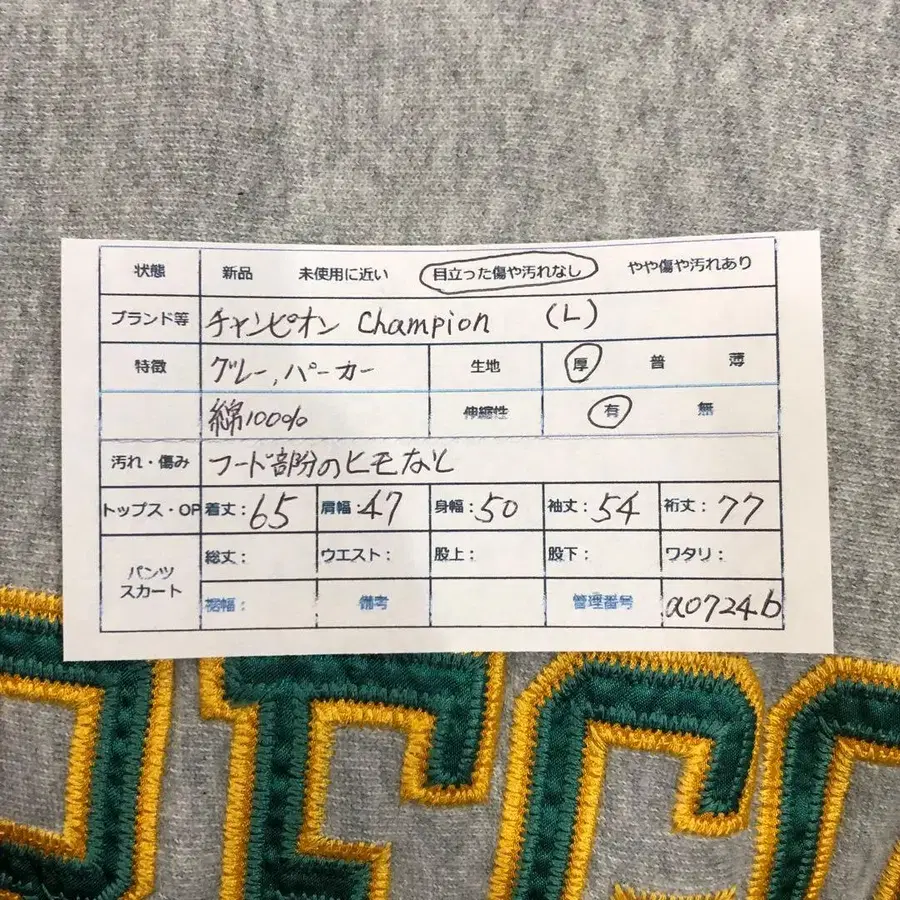 状態 新品 未使用に近い 目立った傷や汚れなし やや傷や汚れあり
ブランド等 チャンピオン Champion (L)
特徴 グレー、パーカー 生地 厚 普 薄
綿100% 伸縮性 有 無
汚れ・傷み フード部分のヒモなし
トップス・OP 着丈:65 肩幅:47 身幅:50 袖丈:54 裄丈:77
パンツ スカート 総丈: ウエスト: 股上: 股下: ワタリ:
裾幅: 備考 管理番号 a0724b